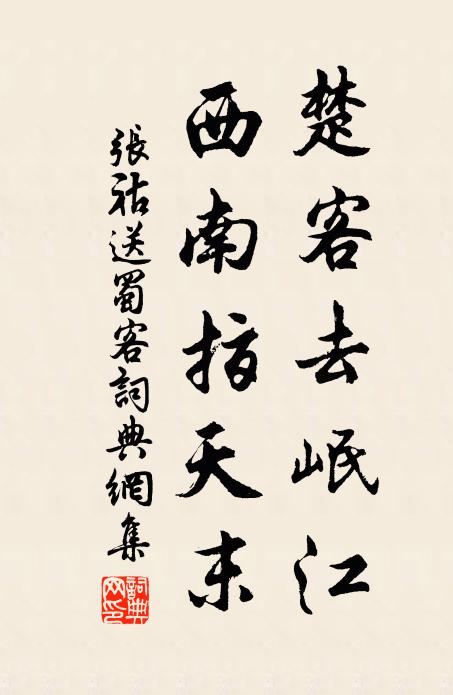 楚客去岷江
西南指天末
張祜送蜀客詞典網集
詞典网印